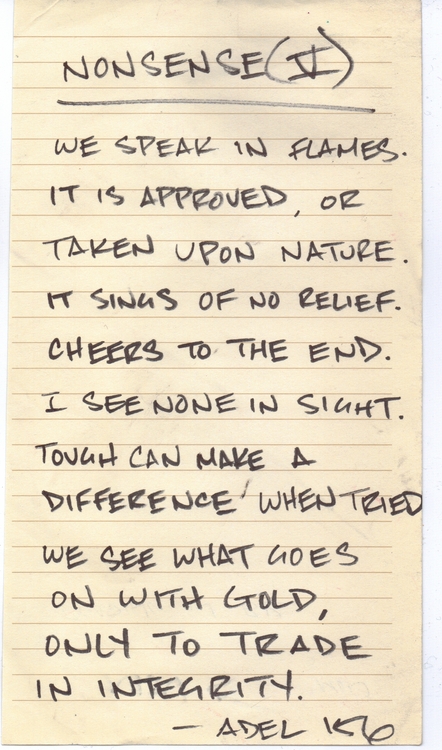 NONSENSE (V)
WE SPEAK IN FLAMES.
IT IS APPROVED, OR
TAKEN UPON NATURE.
IT SINGS OF NO RELIEF.
CHEERS TO THE END.
I SEE NONE IN SIGHT.
TOUGH CAN MAKE A
DIFFERENCE WHEN TRIED
WE SEE WHAT GOES
ON WITH GOLD,
ONLY TO TRADE
IN INTEGRITY.
— ADEL